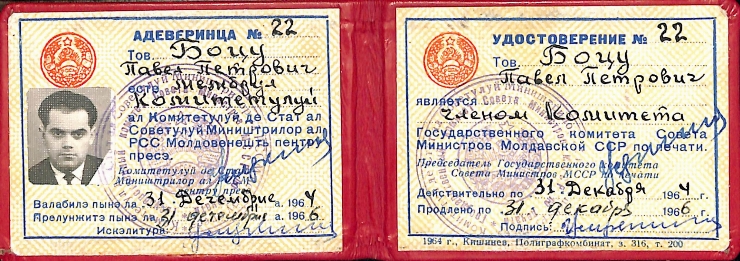 АДЕВЕРИНЦА № 22
Тов. Боцу
Павел Петрович
есте мембрул
Комитетулуй
ал Комитетулуй де Стат ал
Советулуй Миништрилор ал
РСС Молдовенешть пентру
пресэ.
Комитетулуй де Стат
Миништрилор ал
пентру пресэ
Валабилэ пынэ ла 31 Дечембрие а. 1964
Прелунжитэ пынэ ла 31 дечембрие а. 1966
Искэлитура:
УДОСТОВЕРЕНИЕ № 22
Тов. Боцу
Павел Петрович
является
членом Комитета
Государственного комитета Совета
Министров Молдавской ССР по печати.
Председатель Государственного комитета
Совета Министров МССР по печати
Действительно по 31 Декабря 1964 г.
Продлено по 31 декабрь 1966 г.
Подпись:
1964 г., Кишинев, Полиграфкомбинат, з. 316, т. 200